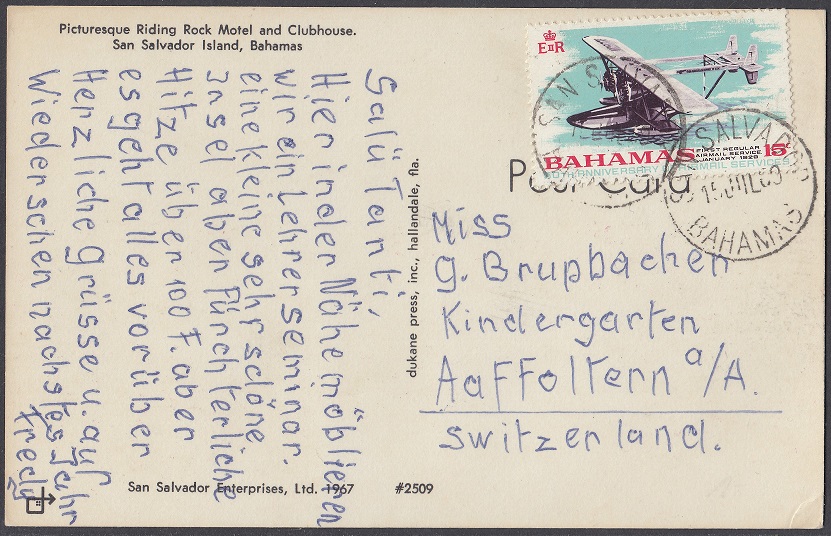 Picturesque Riding Rock Motel and Clubhouse.
San Salvador Island, Bahamas
Salü Tanti,
Hier in der Nähe möblieren
wir ein Lehrerseminar.
eine kleine sehr schöne
insel aber fürchterliche
Hitze über 100 F. aber
es geht alles vorüber
Herzliche Grüsse u. auf
Wiederschen nachstes Jahr
Fredy
San Salvador Enterprises, Ltd. 1967 #2509
dukane press, inc., hallandale, fla.
E II R
BAHAMAS
FIRST REGULAR
AIRMAIL SERVICE
JANUARY 1929
15c
50TH ANNIVERSARY AIRMAIL SERVICES
SAN SALVADOR
15 JUL 69
BAHAMAS
Post Card
Miss
G. Brupbachen
Kindergarten
Aaffoltern a/A.
Switzerland.